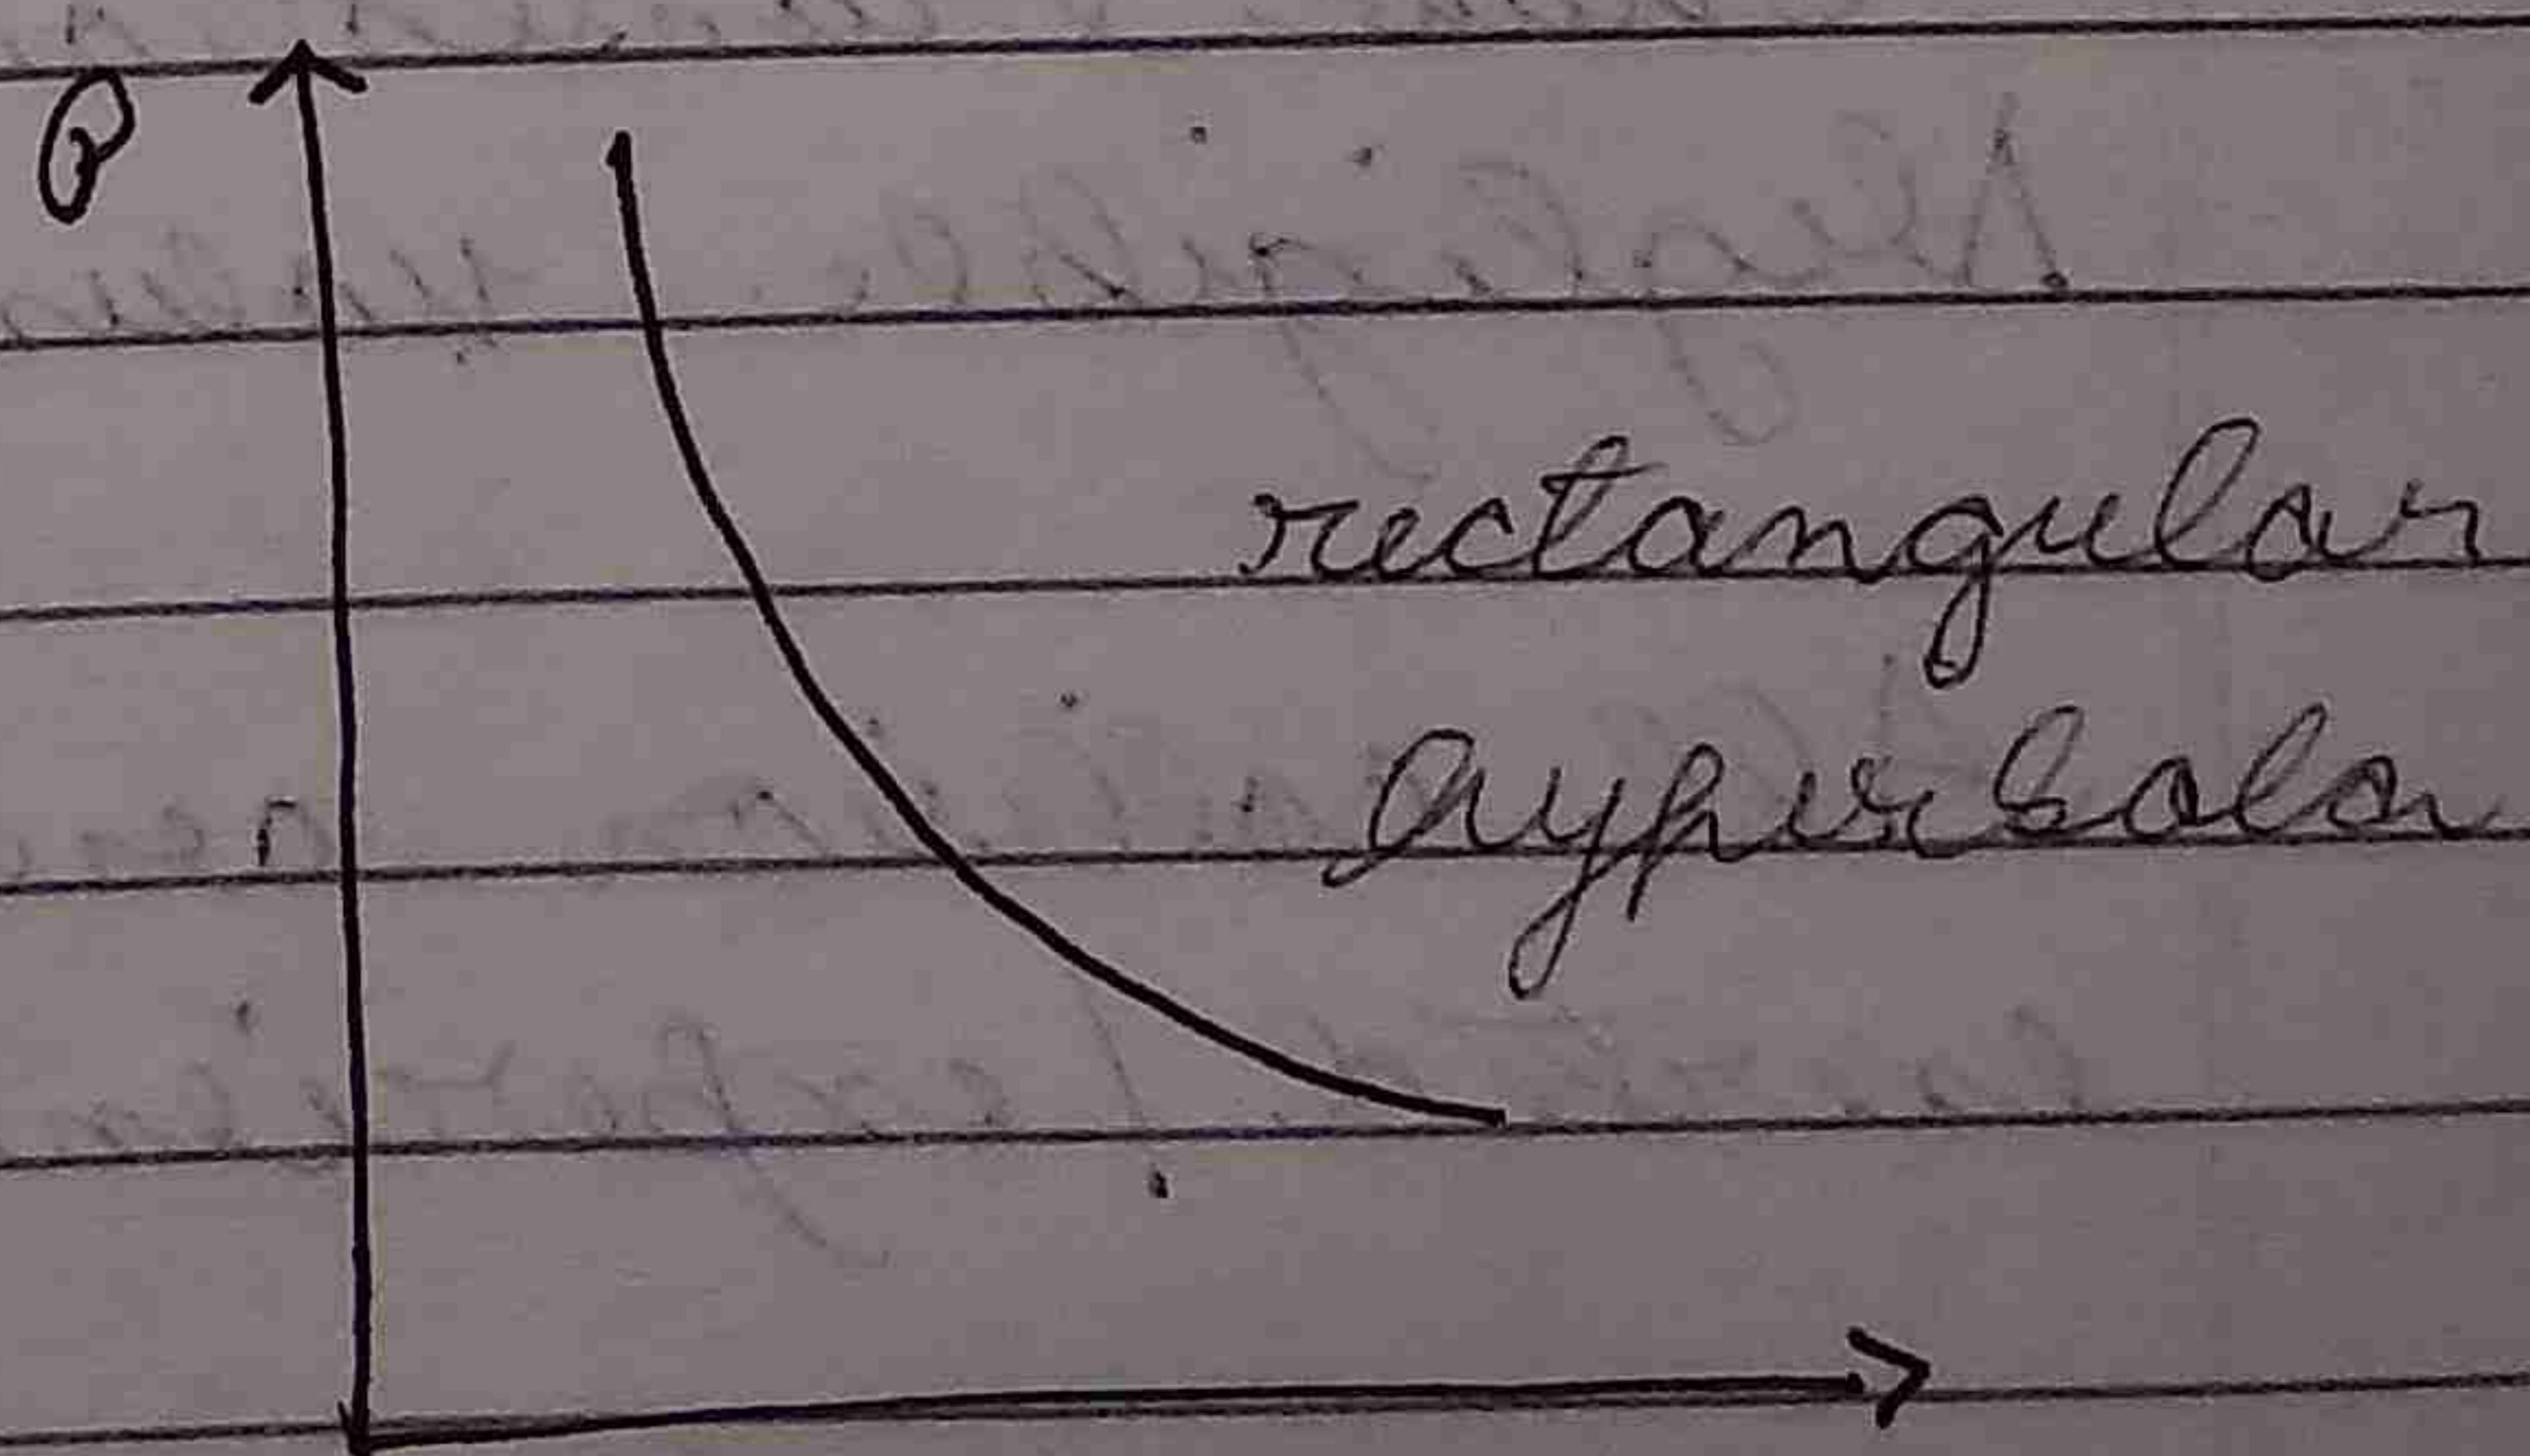 P
rectangular
hyperbola